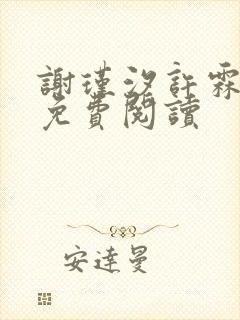 謝瑾汐許霖
免費閱讀
安達曼